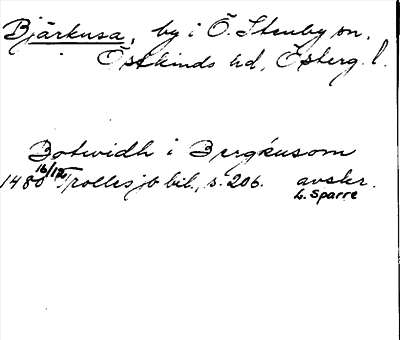 Bjärkusa, by i Ö. Stenby sn,
Östkinds hd, Österg. l.
Botwidh i Bergkusom
1480 16/12 Trolles jb bil., s. 206. avskr.
L. Sparre